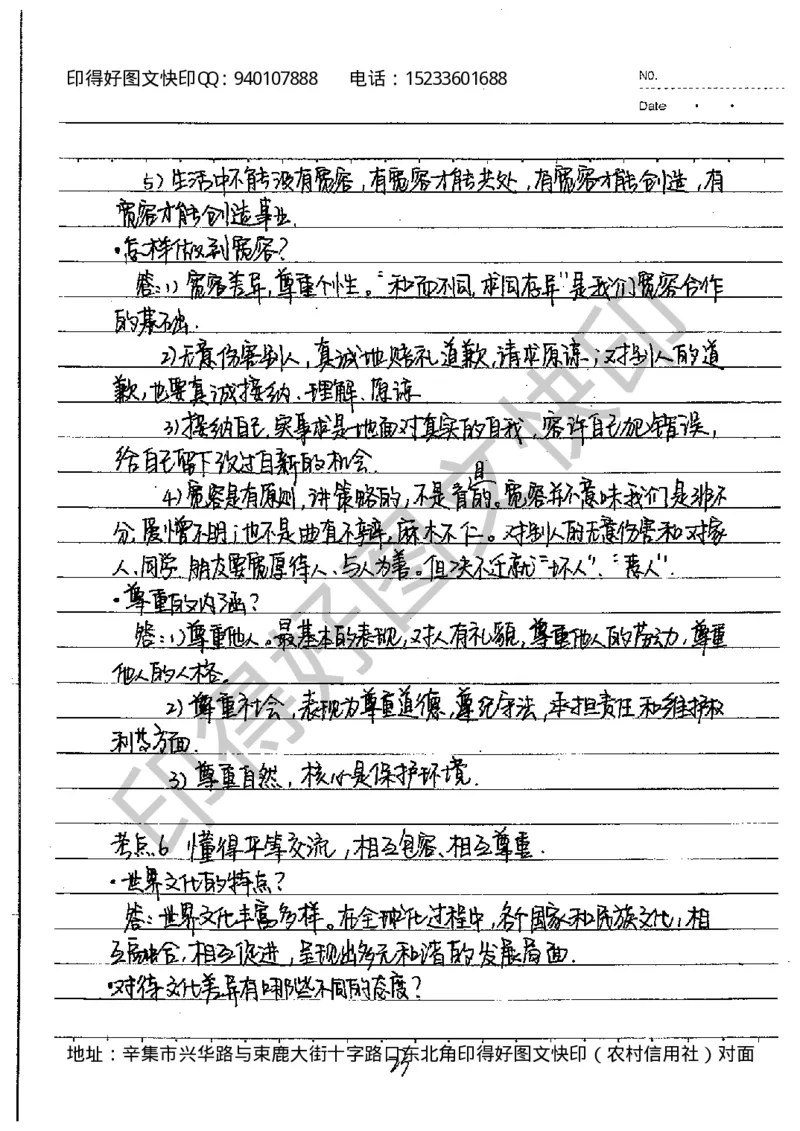 印得好图文快印QQ：940107888 电话：15233601688
NO.
Date · ·
5）生活中不能没有宽容，有宽容才能共处，有宽容才能创造，有
宽容才能创造事业.
·怎样做到宽容？
答：1）宽容差异，尊重个性。“和而不同，求同存异”是我们宽容合作
的基础.
2）无意伤害别人，真诚地赔礼道歉，请求原谅；对别人的道
歉，也要真诚接纳、理解、原谅
3）接纳自己，实事求是地面对真实的自我，容许自己犯错误，
给自己留下改过自新的机会.
4）宽容是有原则，讲策略的，不是盲目的。宽容并不意味我们是非不
分，爱憎不明；也不是曲直不辨，麻木不仁。对别人的无意伤害和对家
人、同学、朋友要宽厚待人、与人为善。但决不迁就“坏人”、“恶人”.
·尊重的内涵？
答：1）尊重他人。最基本的表现，对人有礼貌，尊重他人的劳动，尊重
他人的人格。
2）尊重社会，表现为尊重道德，遵纪守法，承担责任和维护权
利等方面.
3）尊重自然，核心是保护环境.
考点6 懂得平等交流，相互包容、相互尊重.
·世界文化的特点？
答：世界文化丰富多样。在全球化过程中，各个国家和民族文化，相
互融合，相互促进，呈现出多元和谐的发展局面.
·对待文化差异有哪些不同的态度？
地址：辛集市兴华路与束鹿大街十字路口东北角印得好图文快印（农村信用社）对面
印得好图文快印